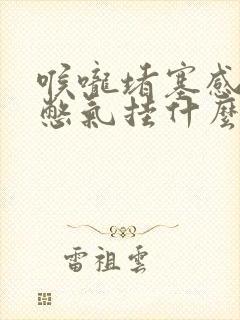 喉嚨堵塞感
憋氣挂什麼
雷祖雲